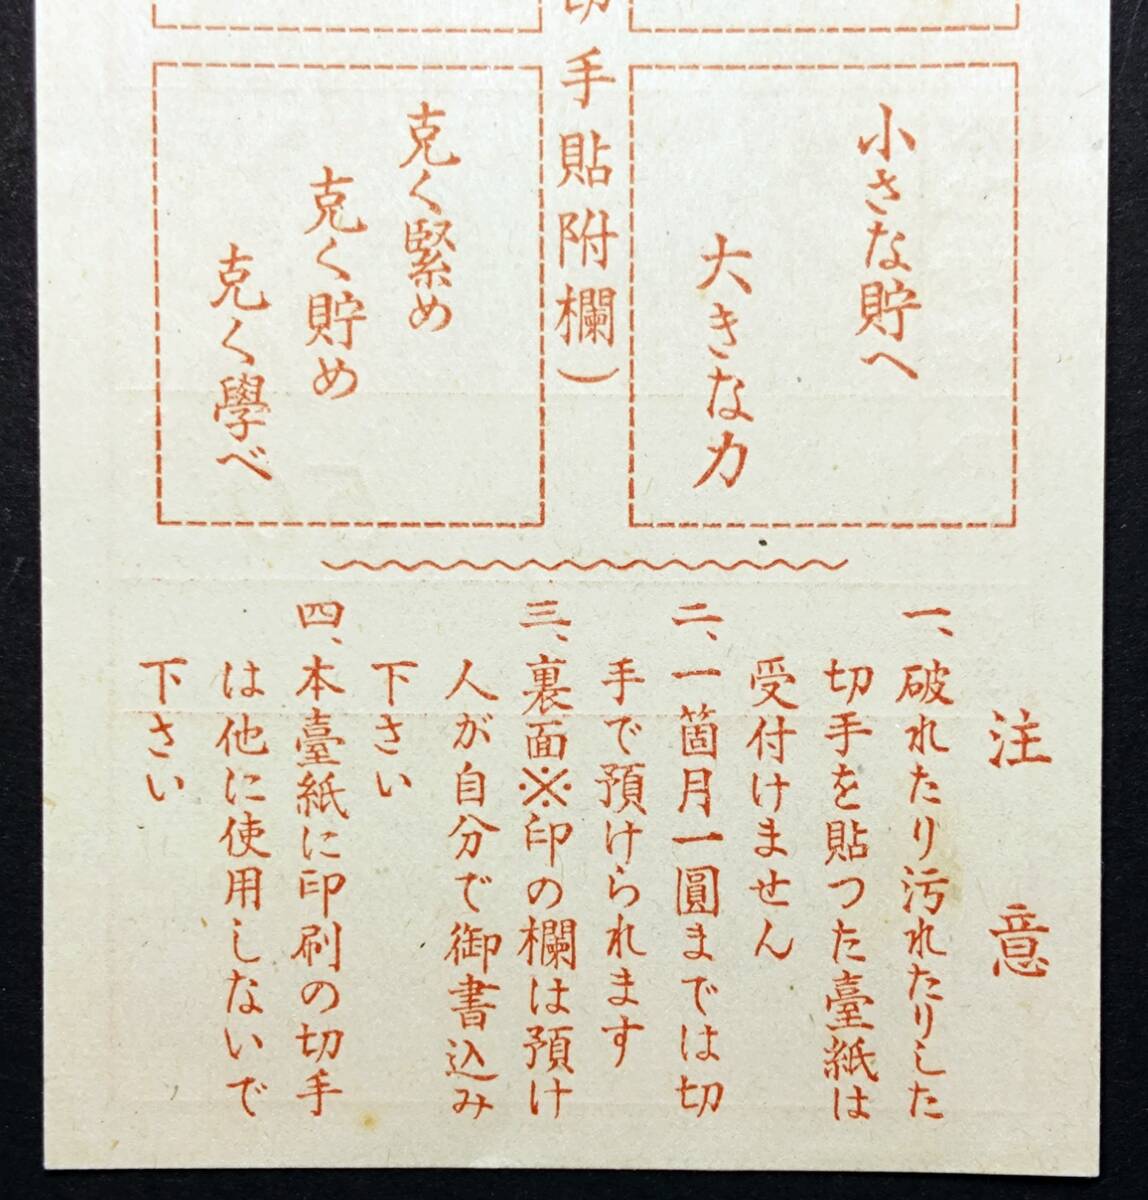 小さな貯へ
大きな力
切手貼附欄）
克く緊め
克く貯め
克く學べ
注意
一、破れたり汚れたりした
切手を貼つた臺紙は
受付けません
二、一箇月一圓までは切
手で預けられます
三、裏面※印の欄は預け
人が自分で御書込み
下さい
四、本臺紙に印刷の切手
は他に使用しないで
下さい